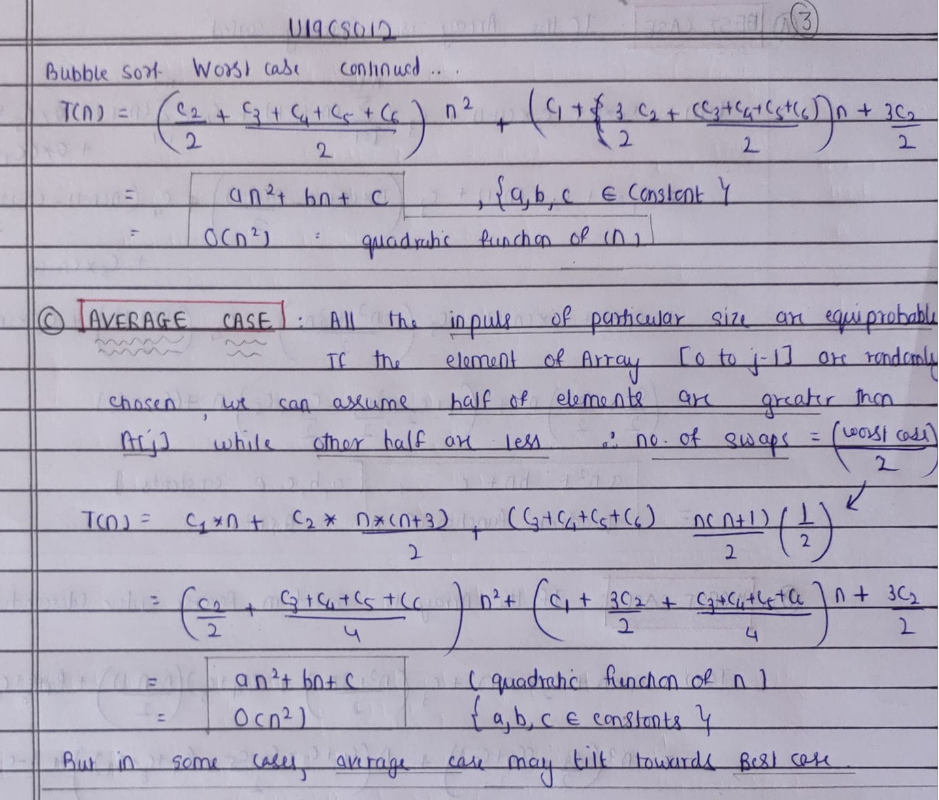 U19CS012 ③
Bubble sort Worst case continued ..
T(n) = (C2/2 + (C3+C4+C5+C6)/2) n² + (C1 + 3/2 C2 + (C3+C4+C5+C6)/2) n + 3C2/2
= an²+ bn + c , {a,b,c ∈ Constant }
= O(n²) : quadratic function of (n)
Ⓒ [AVERAGE CASE] : All the inputs of particular size are equiprobable
If the element of Array [0 to j-1] are randomly
chosen, we can assume half of elements are greater than
A[j] while other half are less ∴ no. of swaps = (worst case)/2
T(n) = C1*n + C2 * n*(n+3)/2 + (C3+C4+C5+C6) n(n+1)/2 (1/2)
= (C2/2 + (C3+C4+C5+C6)/4) n² + (C1 + 3C2/2 + (C3+C4+C5+C6)/4) n + 3C2/2
= an²+ bn+c (quadratic function of n)
= O(n²) {a,b,c ∈ constants }
But in some cases, average case may tilt towards Best case.